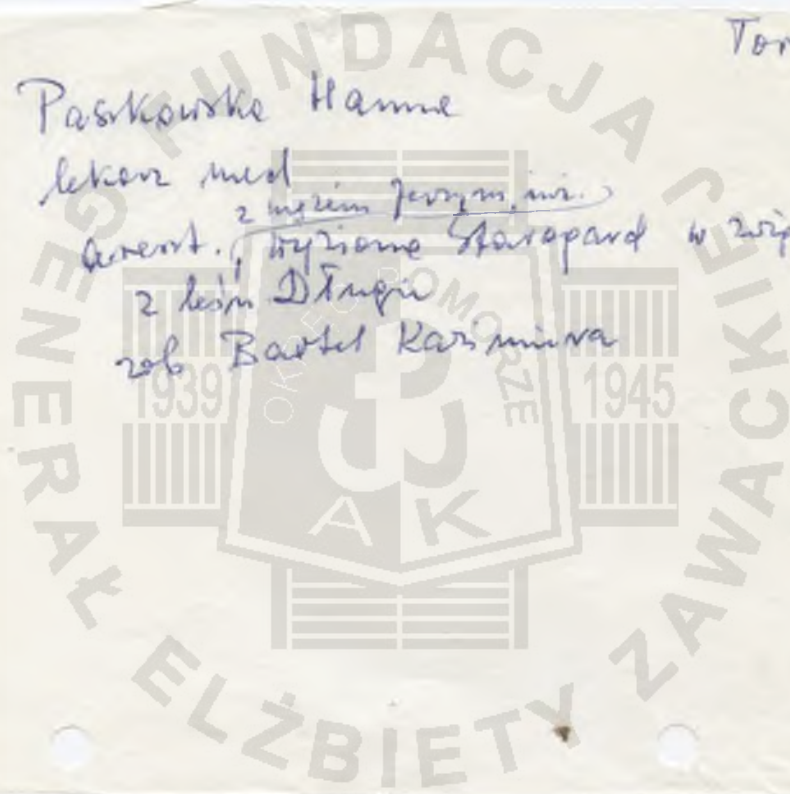 Tor
Paszkowska Hanna
lekarz med
z mężem Jerzym, inż.
areszt., Starogard w zwią
z leśn Długie
zob Bartel Kazimiera
FUNDACJA GENERAŁ ELŻBIETY ZAWACKIEJ
OKRĘG POMORZE
1939 1945
AK